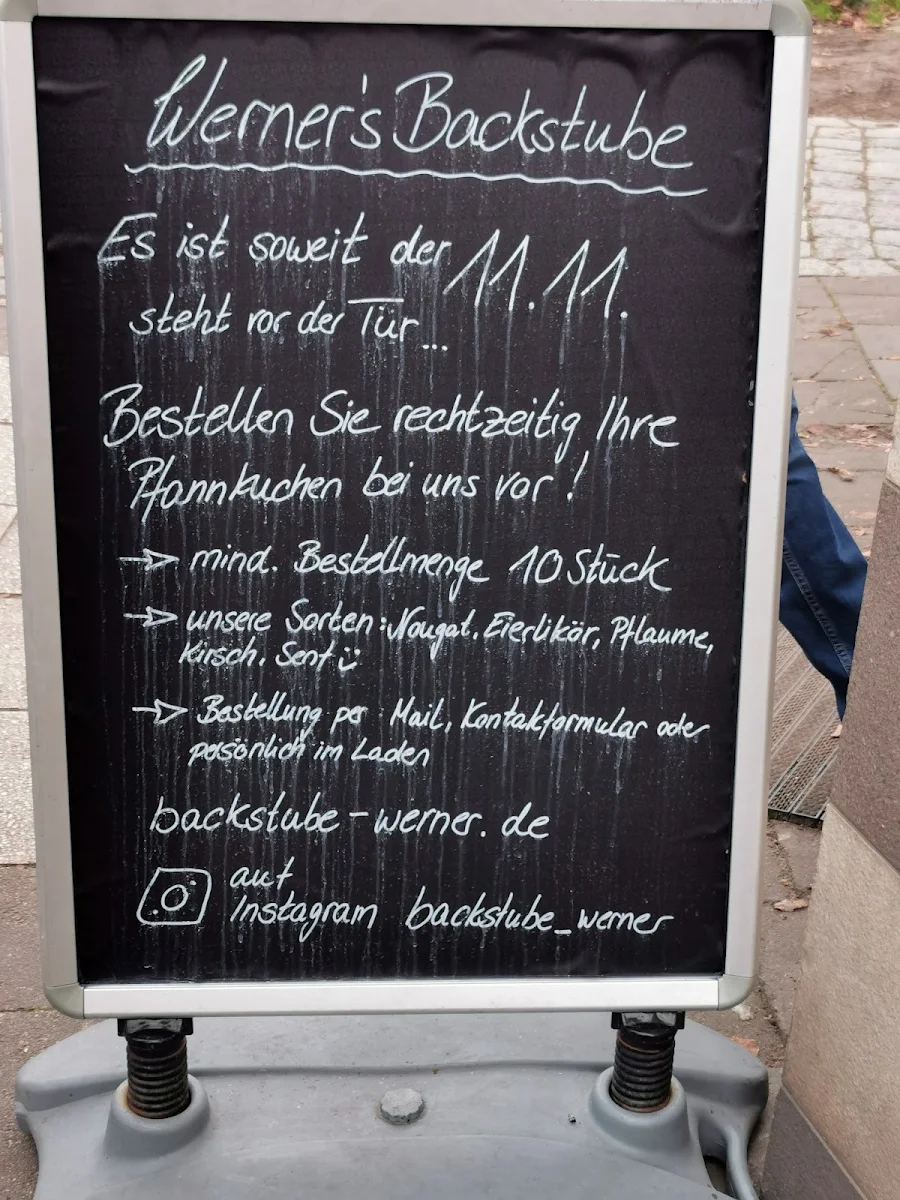 Werner's Backstube
Es ist soweit der 11.11.
steht vor der Tür...
Bestellen Sie rechtzeitig Ihre
Pfannkuchen bei uns vor!
→ mind. Bestellmenge 10 Stück
→ unsere Sorten: Nougat, Eierlikör, Pflaume,
Kirsch, Senf :)
→ Bestellung per: Mail, Kontakformular oder
persönlich im Laden
backstube-werner.de
auf
Instagram backstube_werner